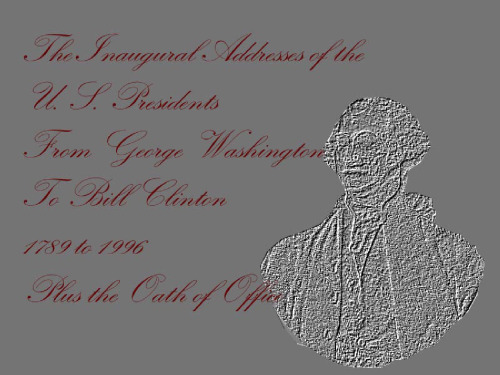 The Inaugural Addresses of the
U. S. Presidents
From George Washington
To Bill Clinton
1789 to 1996
Plus the Oath of Office